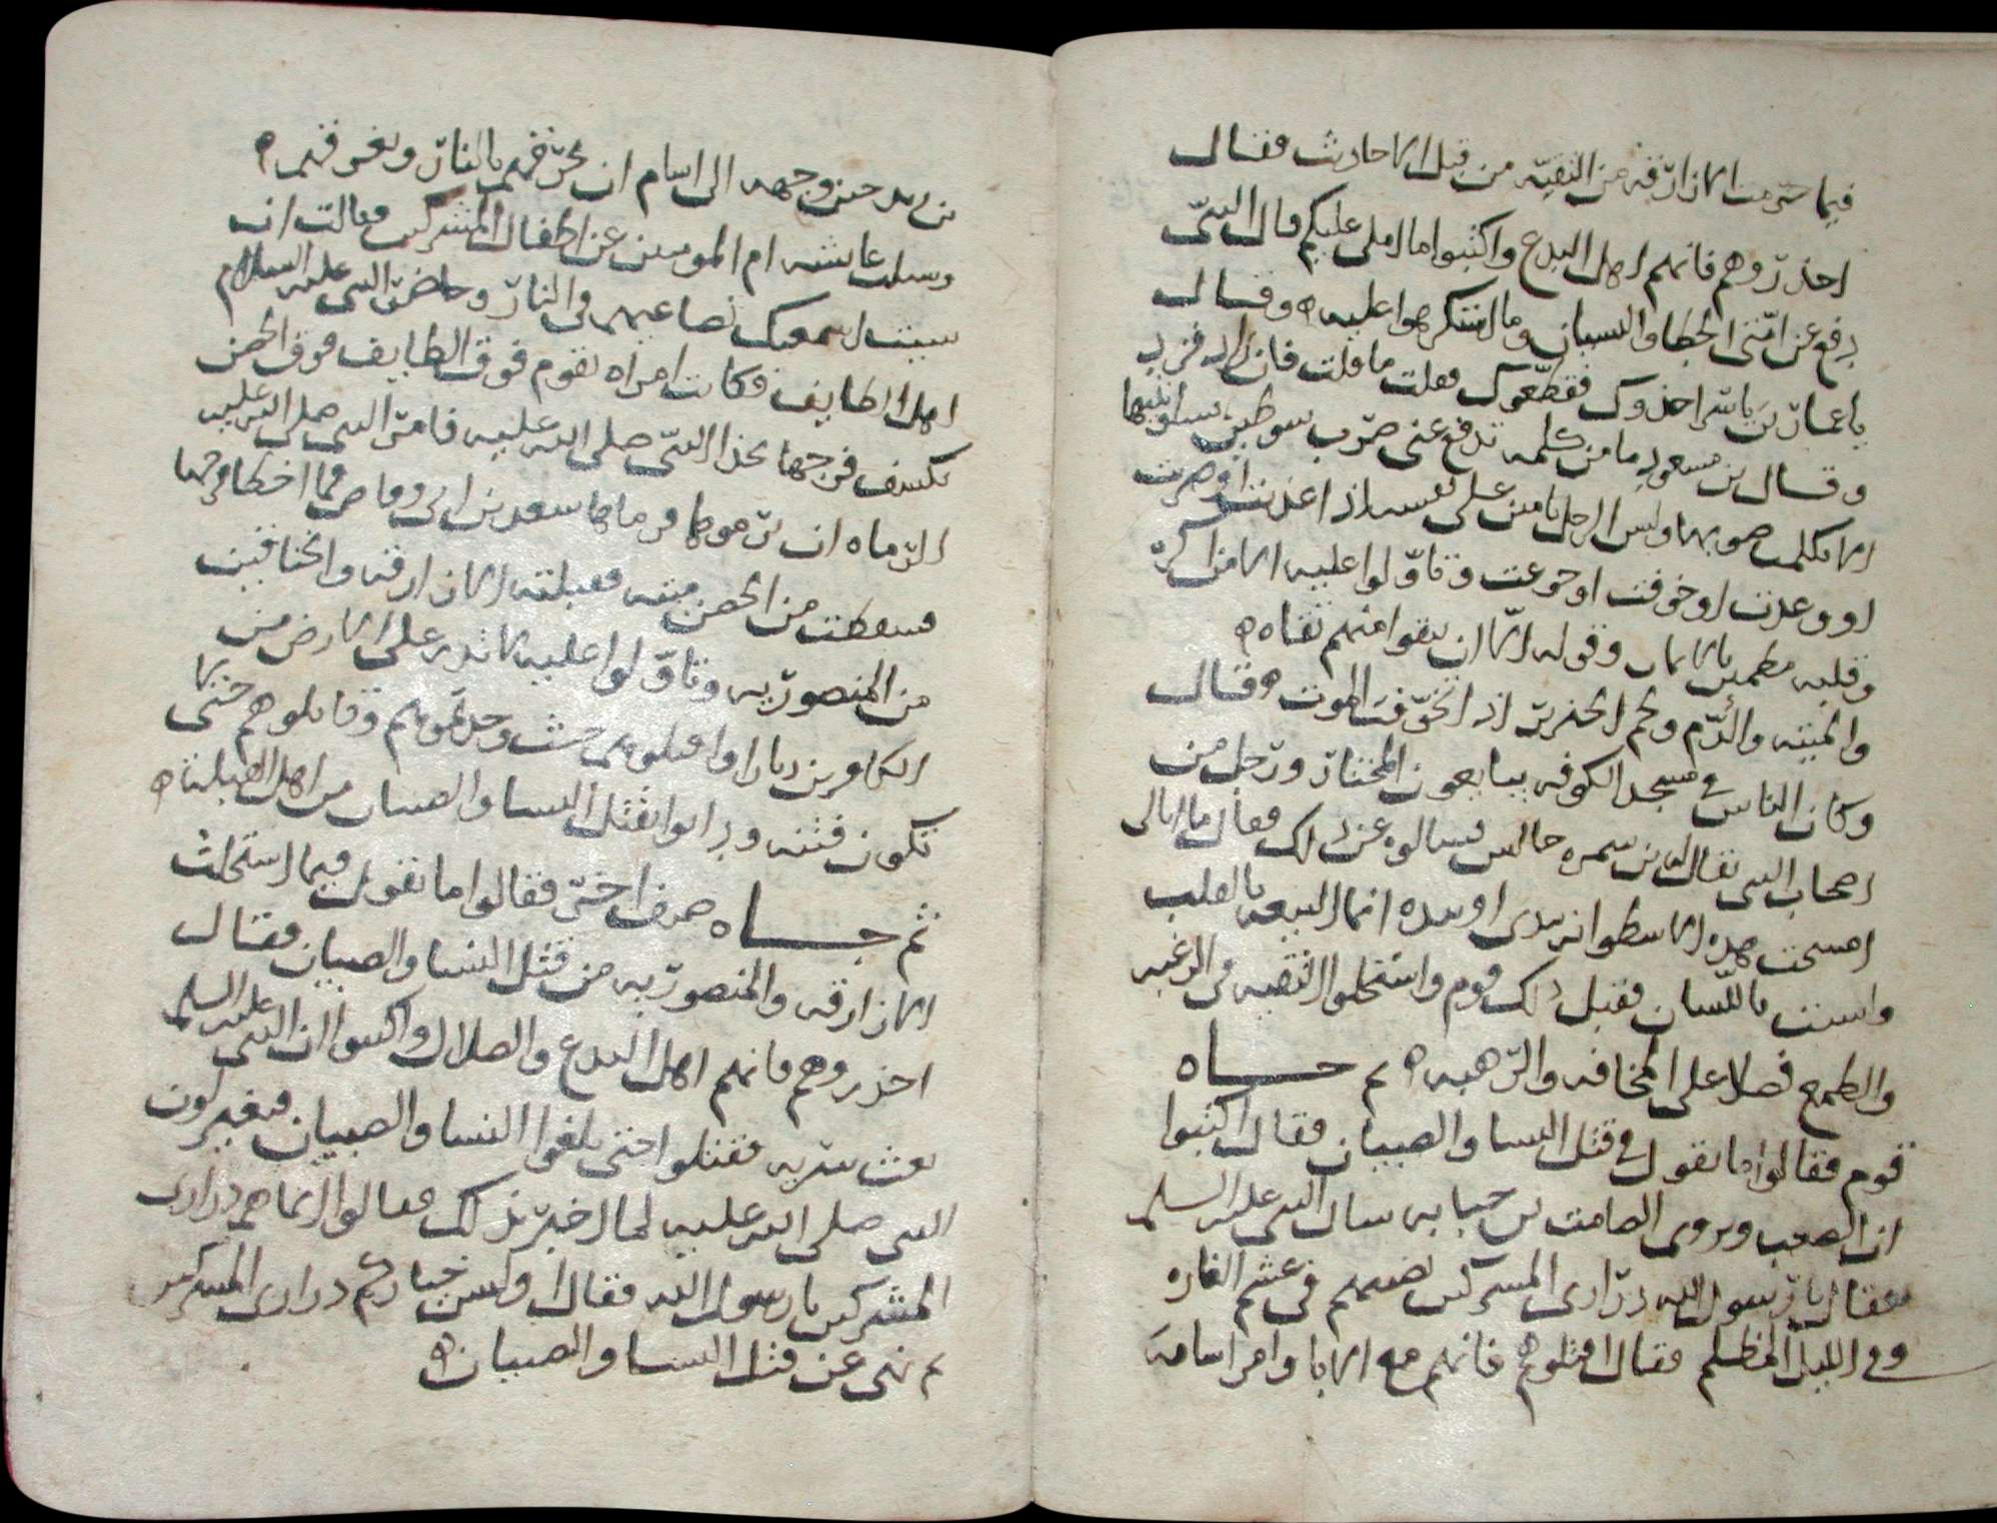 فيما حرمت الازارقه من التقيّه من قبل الاحاديث فقال
احذروهم فانهم اهل البدع واكتبوا ما املى عليكم قال النبىّ
رفع عن امّتى الخطا والنسيان وما استكرهوا عليه ه وقال
يا عمار بن ياسر اخذوك فغطّوك فقلت ما قلت فان زادو فزد
وقال بن مسعود ما من كلمه تدفع عنى ضرب سوطين
الا تكلمت بها وليس الرجل بامين على نفسه اذا عذبت او ضربت
او وعدت او خوفت او جوعت وتاوّلوا عليه الا من اكره
وقلبه مطمين بالايمان وقوله الّا ان تتقوا منهم تقاه ه
والميته والدّم ولحم الخنزير اذا تخوّفت الموت ه وقال
وكان الناس فى مسجد الكوفه يبايعون المختار ورجل من
اصحاب النبى يقال له بن سمره جالس فسالوه عن ذلك فقال ما ابالى
امسحت هذه الاسطوانه بيدى او بيده انما البيعه بالقلب
وليست باللّسان فقبل ذلك قوم واستحلوا التقيه فى الرغبه
والطمع فضلا على المخافه والرّهبه ه ثم جـاه
قوم فقالوا ما تقول فى قتل النسا والصبيان فقال اكتبوا
ان الصعب ويروى الصامت بن جثامه سال النبى عليه السلم
فقال يا رسول الله ذرارى المشركين نصيبهم فى غشم الغاره
وفى الليل المظلم فقال اقتلوهم فانهم مع الابا وامر اسامه
بن زيد حين وجهه الى اسام ان يحرّقهم بالنار ويغرقهم ه
وسيلت عايشه ام المومنين عن اطفال المشركين فقالت ان
شيت اسمعتك تضاغيهم فى النار وحاصر النبى عليه السلام
اهل الطايف فكانت امراه تقوم فوق الطايف فوق الحصن
تكشف فرجها بحذا النبىّ صلى الله عليه فامر النبى صلى الله عليه
الرّماه ان يرموها فرماها سعد بن ابى وقاص فما اخطا فرجها
فسقطت من الحصن ميته فقبلته الازارقه والخناقين
من المنصوريه وتاوّلوا عليه لا تذر على الارض من
الكافرين ديارا واقتلوهم حيث وجدتموهم وقاتلوهم حتى لا
تكون فتنه ودانوا بقتل النسا والصبيان من اهل القبله ه
ثم جـــاه صنف اخر فقالوا ما تقول فيما استحلت
الازارقه والمنصوريه من قتل النسا والصبيان فقال
احذروهم فانهم اهل البدع والضلال واكتبوا ان النبى عليه السلم
بعث سريه فقتلوا حتى بلغوا النسا والصبيان
النبى صلى الله عليه لما اخبر بذلك فقالوا انما هم ذرارى
المشركين يا رسول الله فقال اوليس خياركم ذرارى المشركين
ثم نهى عن قتل النسا والصبيان ه